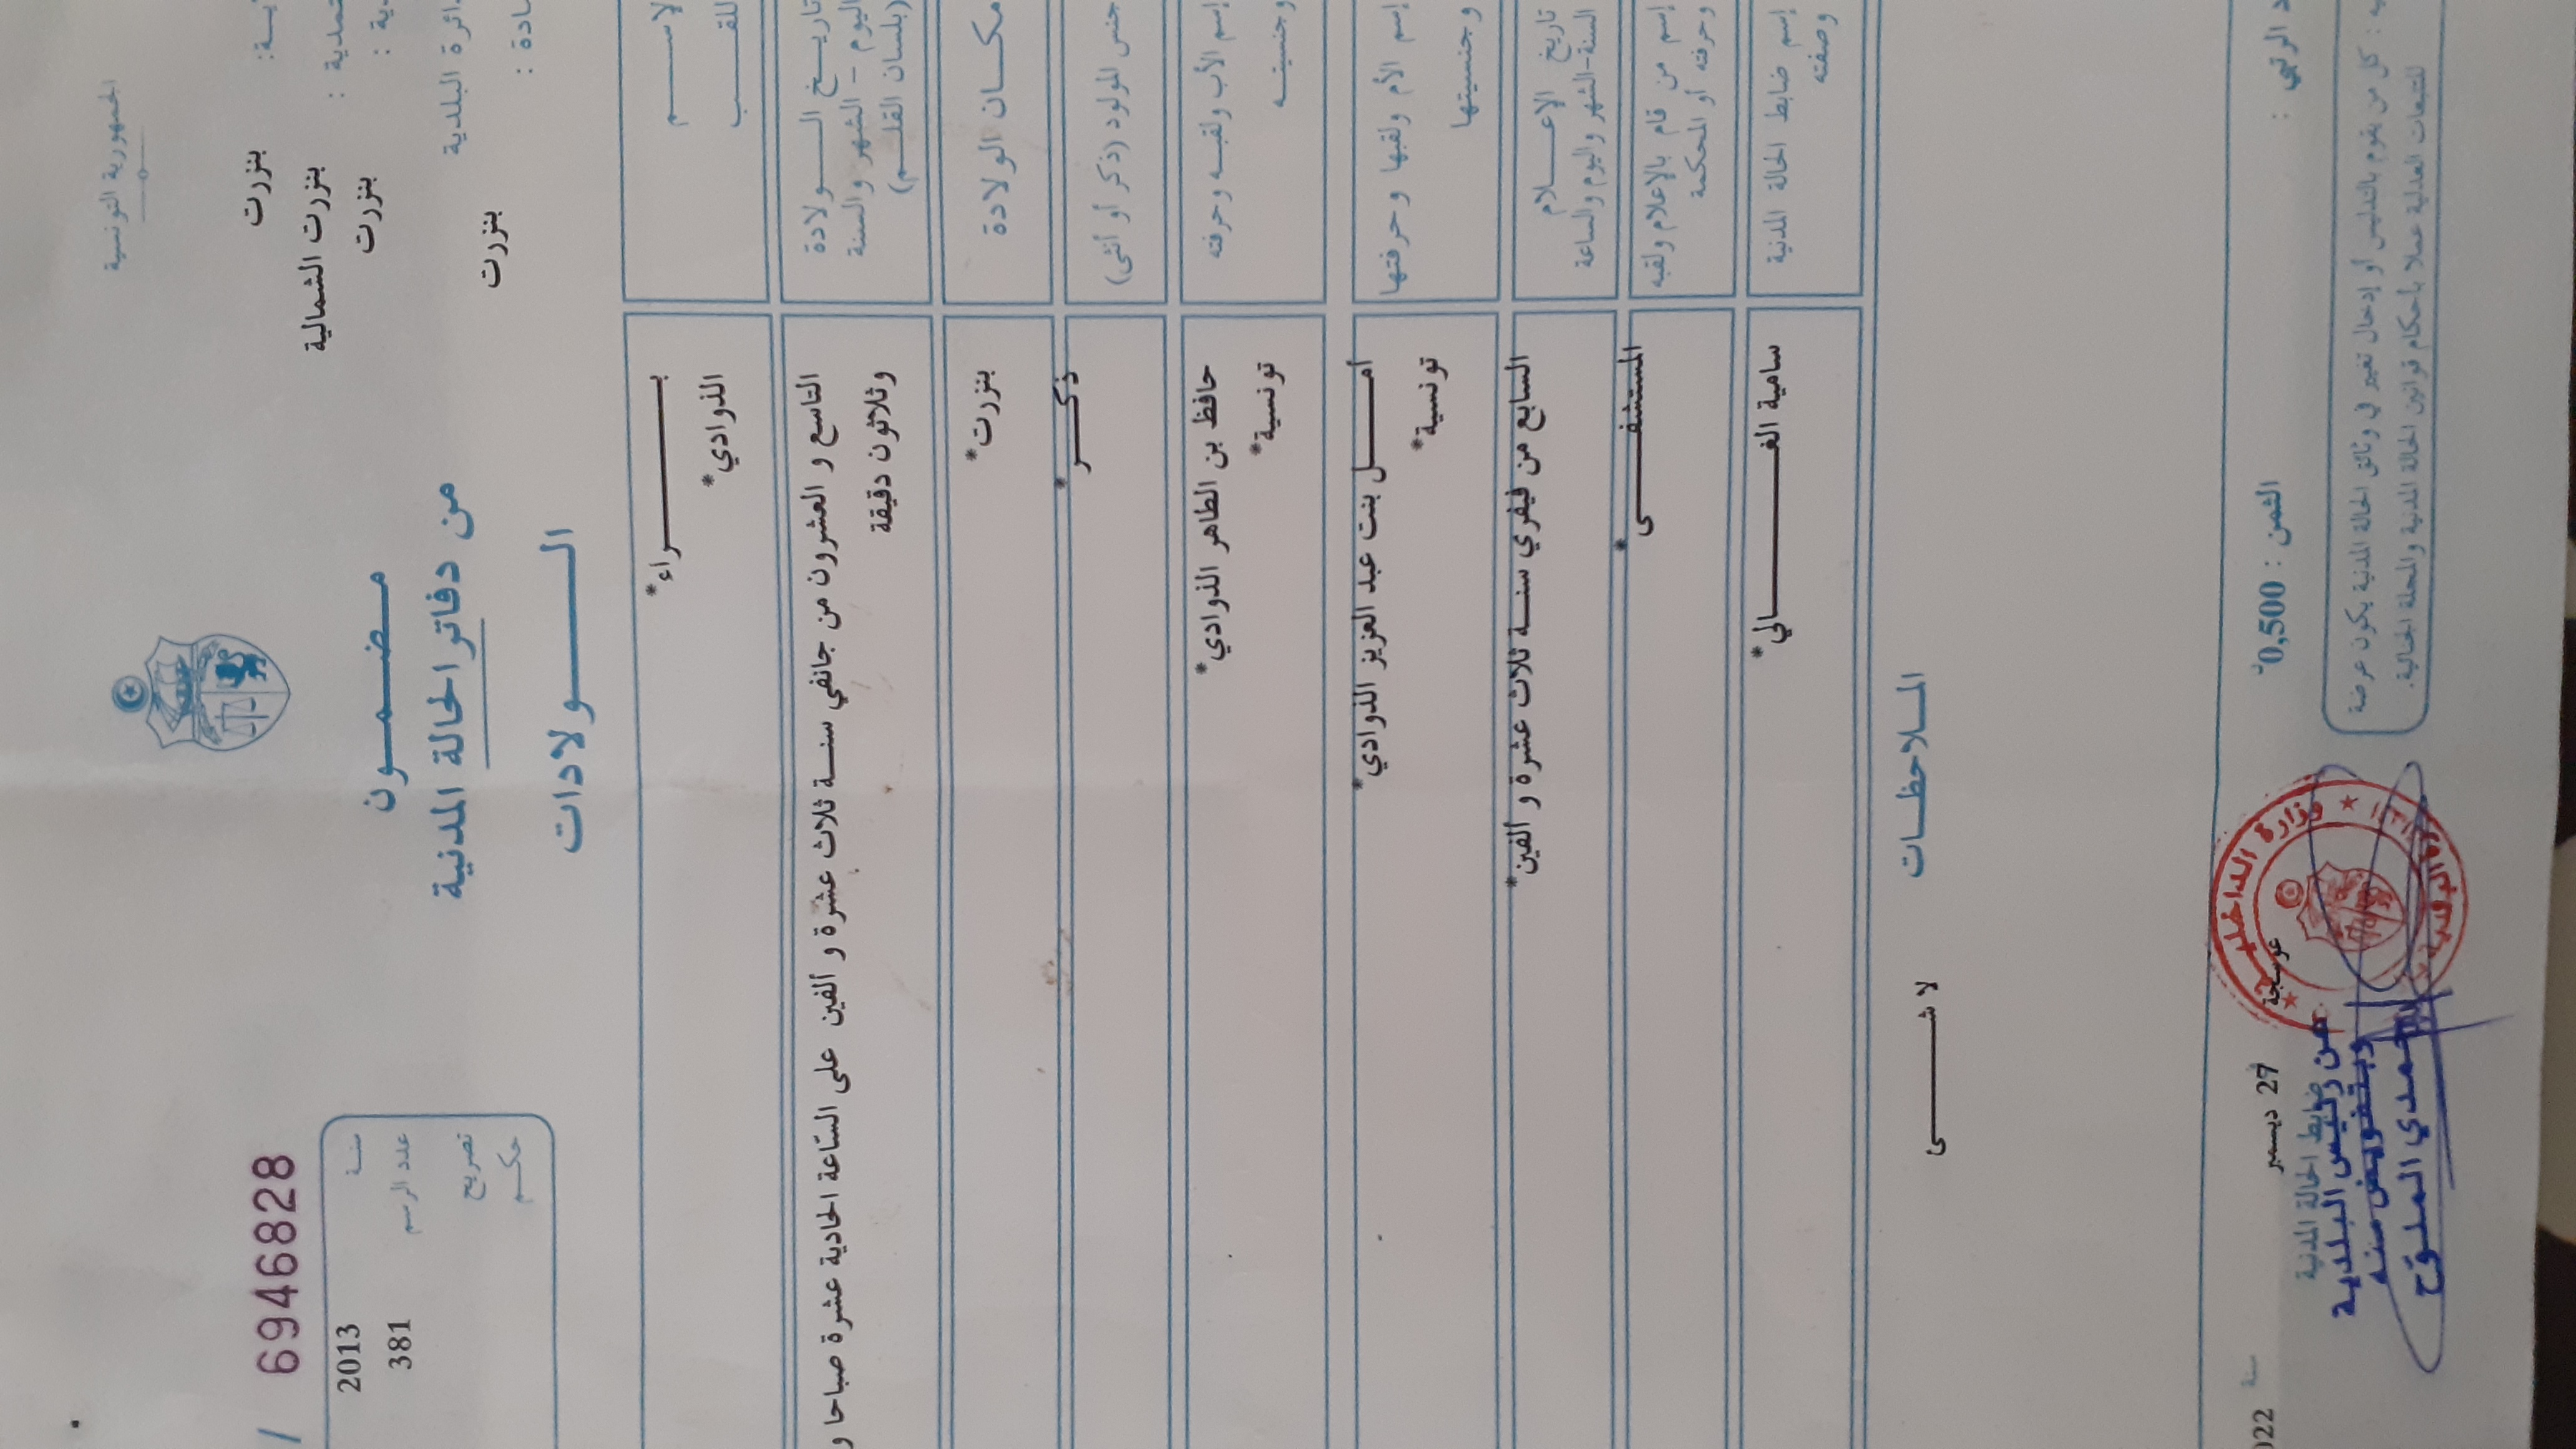 الجمهورية التونسية
بنزرت
بنزرت الشمالية
بنزرت
دائرة البلدية
بنزرت
6946828
سنة 2013
عدد الرسم 381
تصريح
حكم
مضمون
من دفاتر الحالة المدنية
الولادات
الإسم
براء*
اللقب
الذوادي*
تاريخ الولادة
اليوم - الشهر والسنة
(بلسان القلم)
التاسع و العشرون من جانفي سنة ثلاث عشرة و ألفين على الساعة الحادية عشرة صباحا و
وثلاثون دقيقة
مكان الولادة
بنزرت*
جنس المولود (ذكر أو أنثى)
ذكر*
إسم الأب ولقبه وحرفته
وجنسيته
حافظ بن الطاهر الذوادي*
تونسية*
إسم الأم ولقبها وحرفتها
وجنسيتها
أمل بنت عبد العزيز الذوادي*
تونسية*
تاريخ الإعلام
السنة-الشهر واليوم والساعة
السابع من فيفري سنة ثلاث عشرة و ألفين*
إسم من قام بالإعلام ولقبه
وحرفته أو المحكمة
المستشفى*
إسم ضابط الحالة المدنية
وصفته
سامية الغالي*
الملاحظات
لا شى
الثمن : 0,500د
27 ديسمبر
سنة
ضابط الحالة المدنية
عن رئيس البلدية
وبتفويض منه
حمدي الملوّح
وزارة الداخلية
كل من يقوم بالتدليس أو إدخال تغيير في وثائق الحالة المدنية يكون عرضة
للتبعات العدلية عملا بأحكام قوانين الحالة المدنية والمجلة الجنائية.